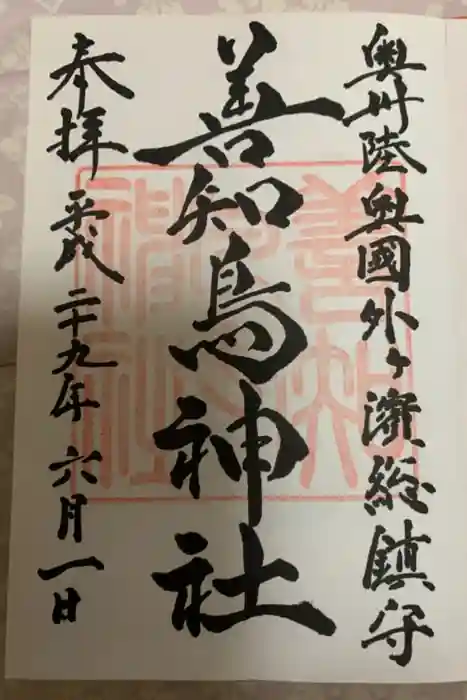 奥州陸奥國外ヶ濱総鎮守
善知鳥神社
奉拝 平成二十九年六月一日